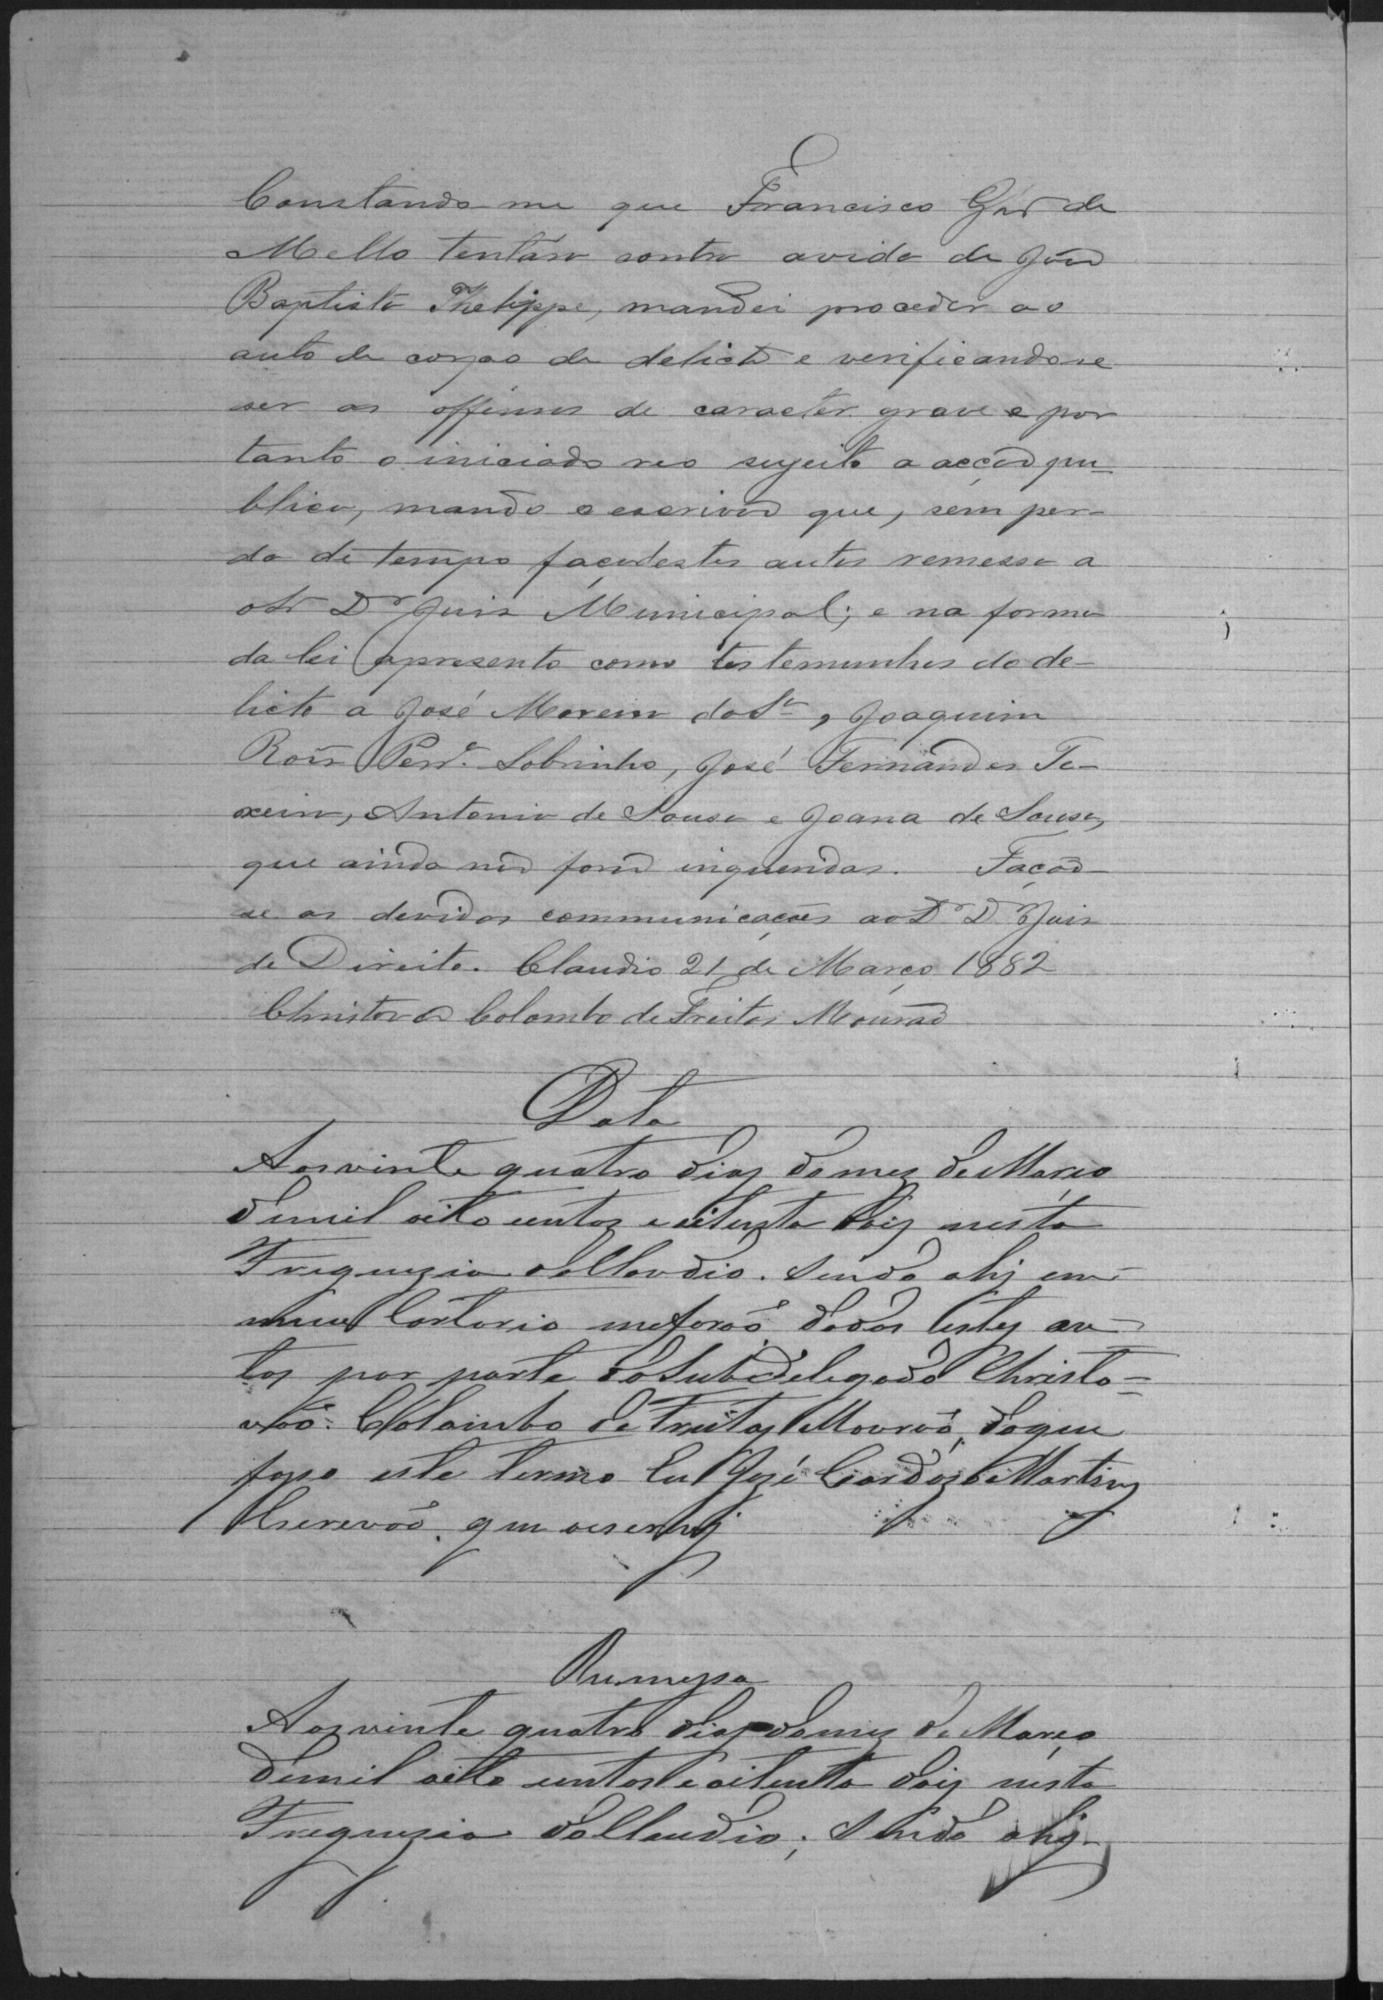 Constando-me que Francisco de
Mello tentára contra avida de João
Baptista Phelippe, mandei proceder ao
auto de corpo de delicto e verificandose
ser as offensas de caracter grave e por
tanto o iniciado reo sugeito a acção pu-
blica, mando o escrivão que, sem per-
da de tempo faça destes autos remessa a
o Sr Dr Juis Municipal; e na forma
da lei apresento como testemunhas do de-
licto a José Moreira da Sa, Joaquim
Roiz Perra Sobrinho, José Fernandes Te-
xeira, Antonio de Sousa e Joana de Sousa,
que ainda não forão inqueridas. Fação
se as devidas communicações ao Dr Juis
de Direito. Claudio 21 de Março 1882
Christovão Colombo de Freitas Mourão
Data
Aos vinte quatro dias do mez de Março
de mil oito centos e oitenta dois nesta
Freguezia do Claudio. Sendo ahi em
meu Cartorio me forão dados estes au-
tos por parte do Subdelegado Christo-
vão Colombo de Freitas Mourão, do que
faço este termo Eu José Cardozo Martins
Escrevão que o escrevi
Remessa
Aos vinte quatro dias do mez de Março
de mil oito centos e oitenta dois nesta
Freguezia do Claudio; Sendo ahi